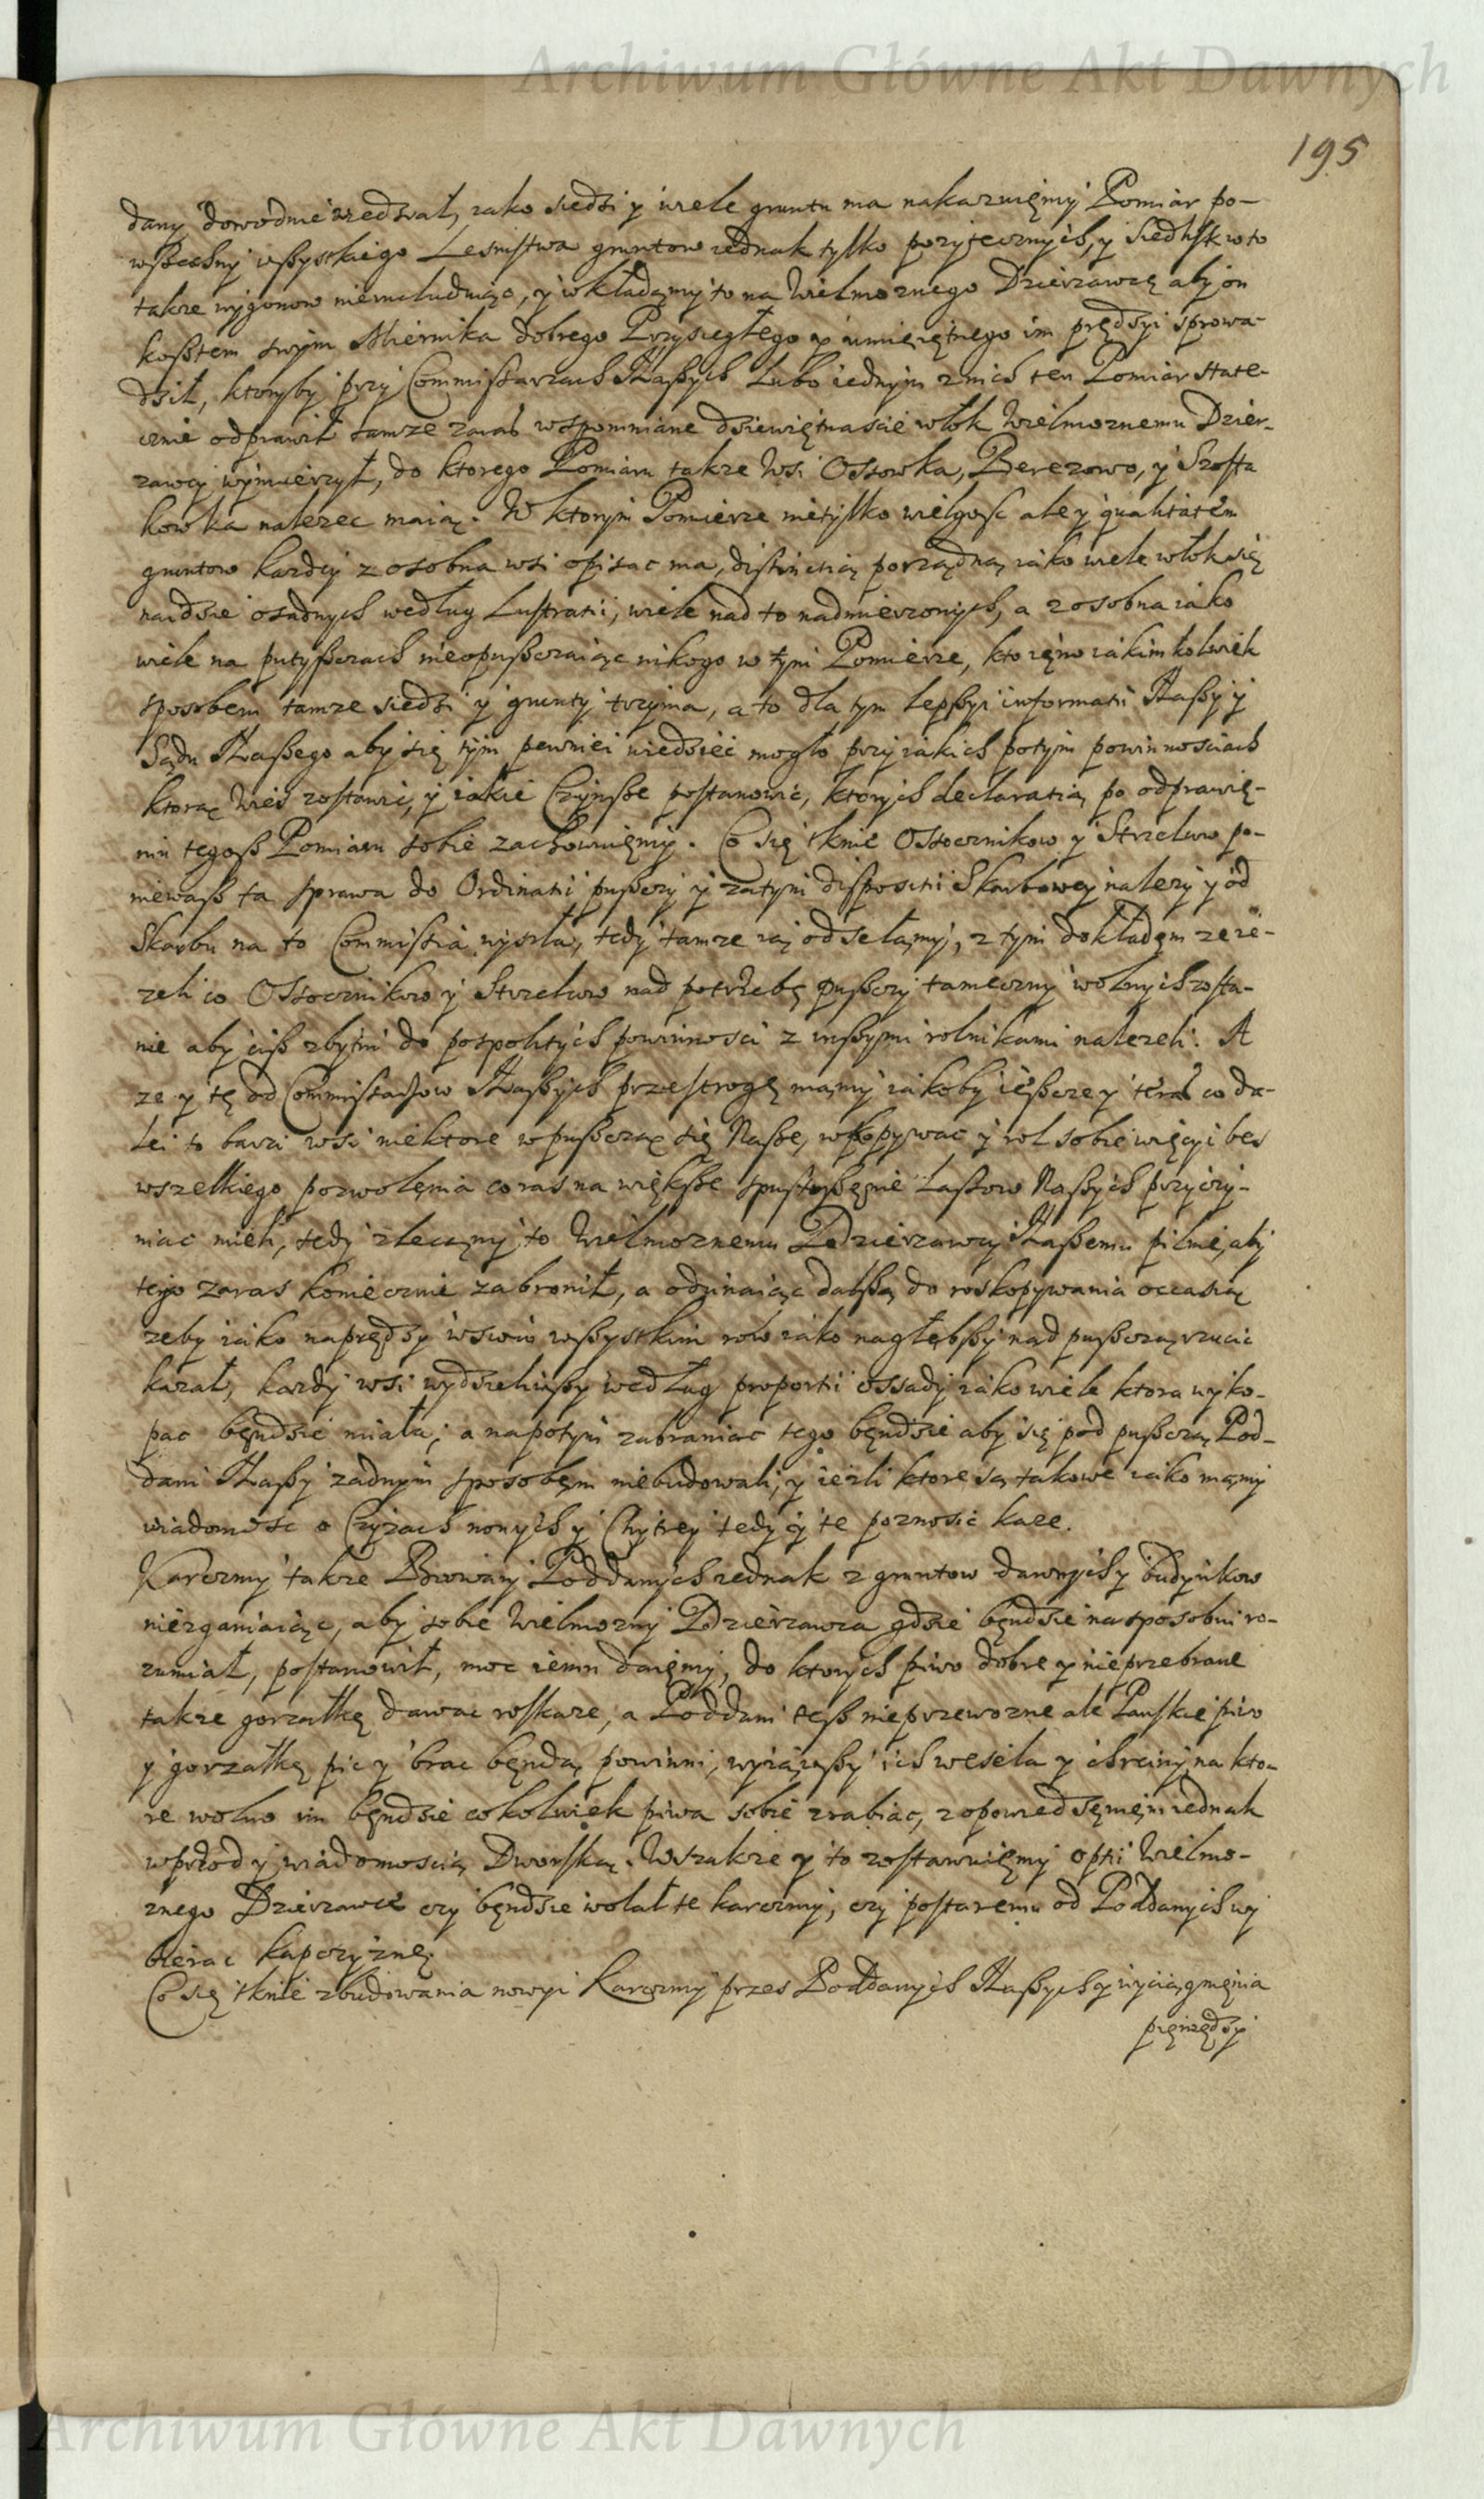 Archiwum Główne Akt Dawnych
195
dany dowodnie wiedział, iako siedzi y wiele gruntu ma nakazuięmy Pomiar po-
wßechny wßystkiego Lesnistwa gruntow iednak tylko pozytecznych, y siedlisk w to
takze wygonow niewcluduiąc, y wkładamy to na Wielmoznego Dzierzawcę aby on
koßtem swym Miernika dobrego Przysięgłego y umieiętnego im prędzyi sprowa-
dził, ktoryby przy Commissarzach Naßych Lubo iednym z nich ten Pomiar state-
cznie odprawił tamze zaras wspomniane dziewiętnascie włok Wielmoznemu Dzier-
zawcy wymierzył, do ktorego Pomiaru takze Wsi Ossowka, Berezowo, y Szosta
kowka nalezec maią. W ktorym Pomierze nietylko wielgosc ale y qualitatem
gruntow kazdey z osobna wsi opisac ma, distinctią porządną iako wiele włok się
naidzie osadnych według Lustratii, wiele nad to nadmierzonych, a zosobna iako
wiele na putyßczach nieopußczaiąc nikogo w tym Pomierze, kto ięno iakimkolwiek
sposobem tamze siedzi y grunty trzyma, a to dla tym lepßyi informatii Naßy y
Sądu Naßego aby się tym pewniei wiedzieć mogło przy iakich potym powinnosciach
ktorąć Wies zostawic, y iakie Czynsße postanowic, ktorych declaratią po odprawię-
niu tegoß Pomiaru sobie zachowuięmy. Co się tknie Ossocznikow y Strzelcow po-
niewaß ta sprawa do Ordinatii pußczy y zatym disposicii Skarbowey nalezy y od
Skarbu na to Commissia wyszła, tedy tamze ią odsełamy, z tym dokładęm ze ie-
zeli co Ossocznikow y Strzelcow nad potrzebę pußczy tameczny wolnych zosta-
nie aby ciß zbytni do pospolitych powinnosci z inßymi rolnikami nalezeli. A
ze y tę od Commissarzow Naßych przestrogę mamy iakoby ießcze y teras co da-
lei to barzi wsi niektore w pußczą się Naße, wkopywac y rol sobie więcyi bes
wszelkiego pozwolęnia coras na więkße spustoßęnie Lassow Naßych przyczy-
niac mieli, tedy zlecamy to Wielmoznemu Dzierzawcy Naßemu pilnie, aby
tego zaras koniecznie zabronił, a odcinaiąc dalßą do roskopywania occasią
zeby iako naprędzy wswin wßystkim row iako nagłębßy nad pußczą rzucic
kazał, kazdy wsi wydzieliwßy według proportii ossady iako wiele ktora wyko-
pac będzie miała, a napotym zabraniac tego będzie aby się pod pußczą Pod-
dani Naßy zadnym sposobęm niebudowali, y iezli ktore są takowe iako mamy
wiadomosc o Czyzach nowych y Chytrey tedy y te poznosic kaze.
Karczmy takze Browary Poddanych iednak z gruntow dawnych y budynkow
niezganiaiąc, aby sobie Wielmozny Dzierzawca gdzie będzie nasposobni ro-
zumiał, postanowił, moc iemu daięmy, do ktorych piwo dobre y nieprzebrane
takze gorzałkę dawac roskaze, a Poddani teß nieprzewozne ale Panskie piwo
y gorzałkę pic y brac będą powinni, wyiąwßy ich wesela y chrciny na kto-
re wolno im będzie cokolwiek piwa sobie zrabiac, z opowiedzęniem iednak
wprzod y wiadomoscią Dworską. Wszakze y to zostawuięmy optii Wielmo-
znego Dzierzawce czy będzie wolał te karczmy, czy postaremu od Poddanych wy
bierac kapczyznę
Co się tknie zbudowania nowyi Karczmy przes Poddanych Naßych y wyciągnięnia
pięnędzy
Archiwum Główne Akt Dawnych